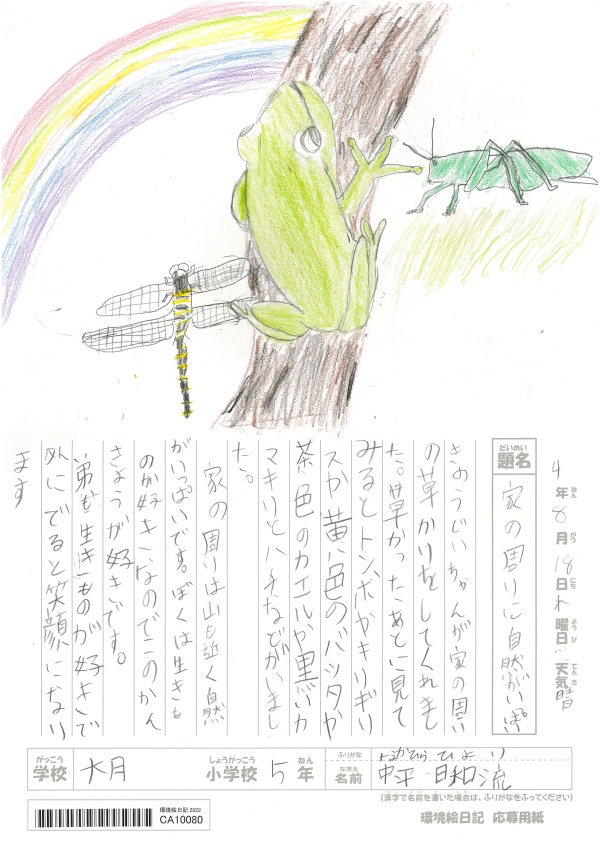 4年8月18日木曜日 天気 晴
ねん がつ にち ようび てんき
だいめい
題名 家の周りに自然がいっぱい
きのうじいちゃんが家の周り
の草かりをしてくれまし
た。草かったあとに見て
みるとトンボやキリギリ
スが黄い色のバッタや
茶色のカエルや黒いカ
マキリとハチなどがいまし
た。
家の周りは山も近く自然
がいっぱいです。ぼくは生きも
のが好きなのでこのかん
きょうが好きです。
弟も生きものが好きで
外にでると笑顔になり
ます
がっこう しょうがっこう ねん ふりがな ひより
学校 大月 小学校 5年 なまえ 名前 中平 日和流
(漢字で名前を書いた場合は、ふりがなをふってください)
環境絵日記 2022
CA10080
環境絵日記 応募用紙